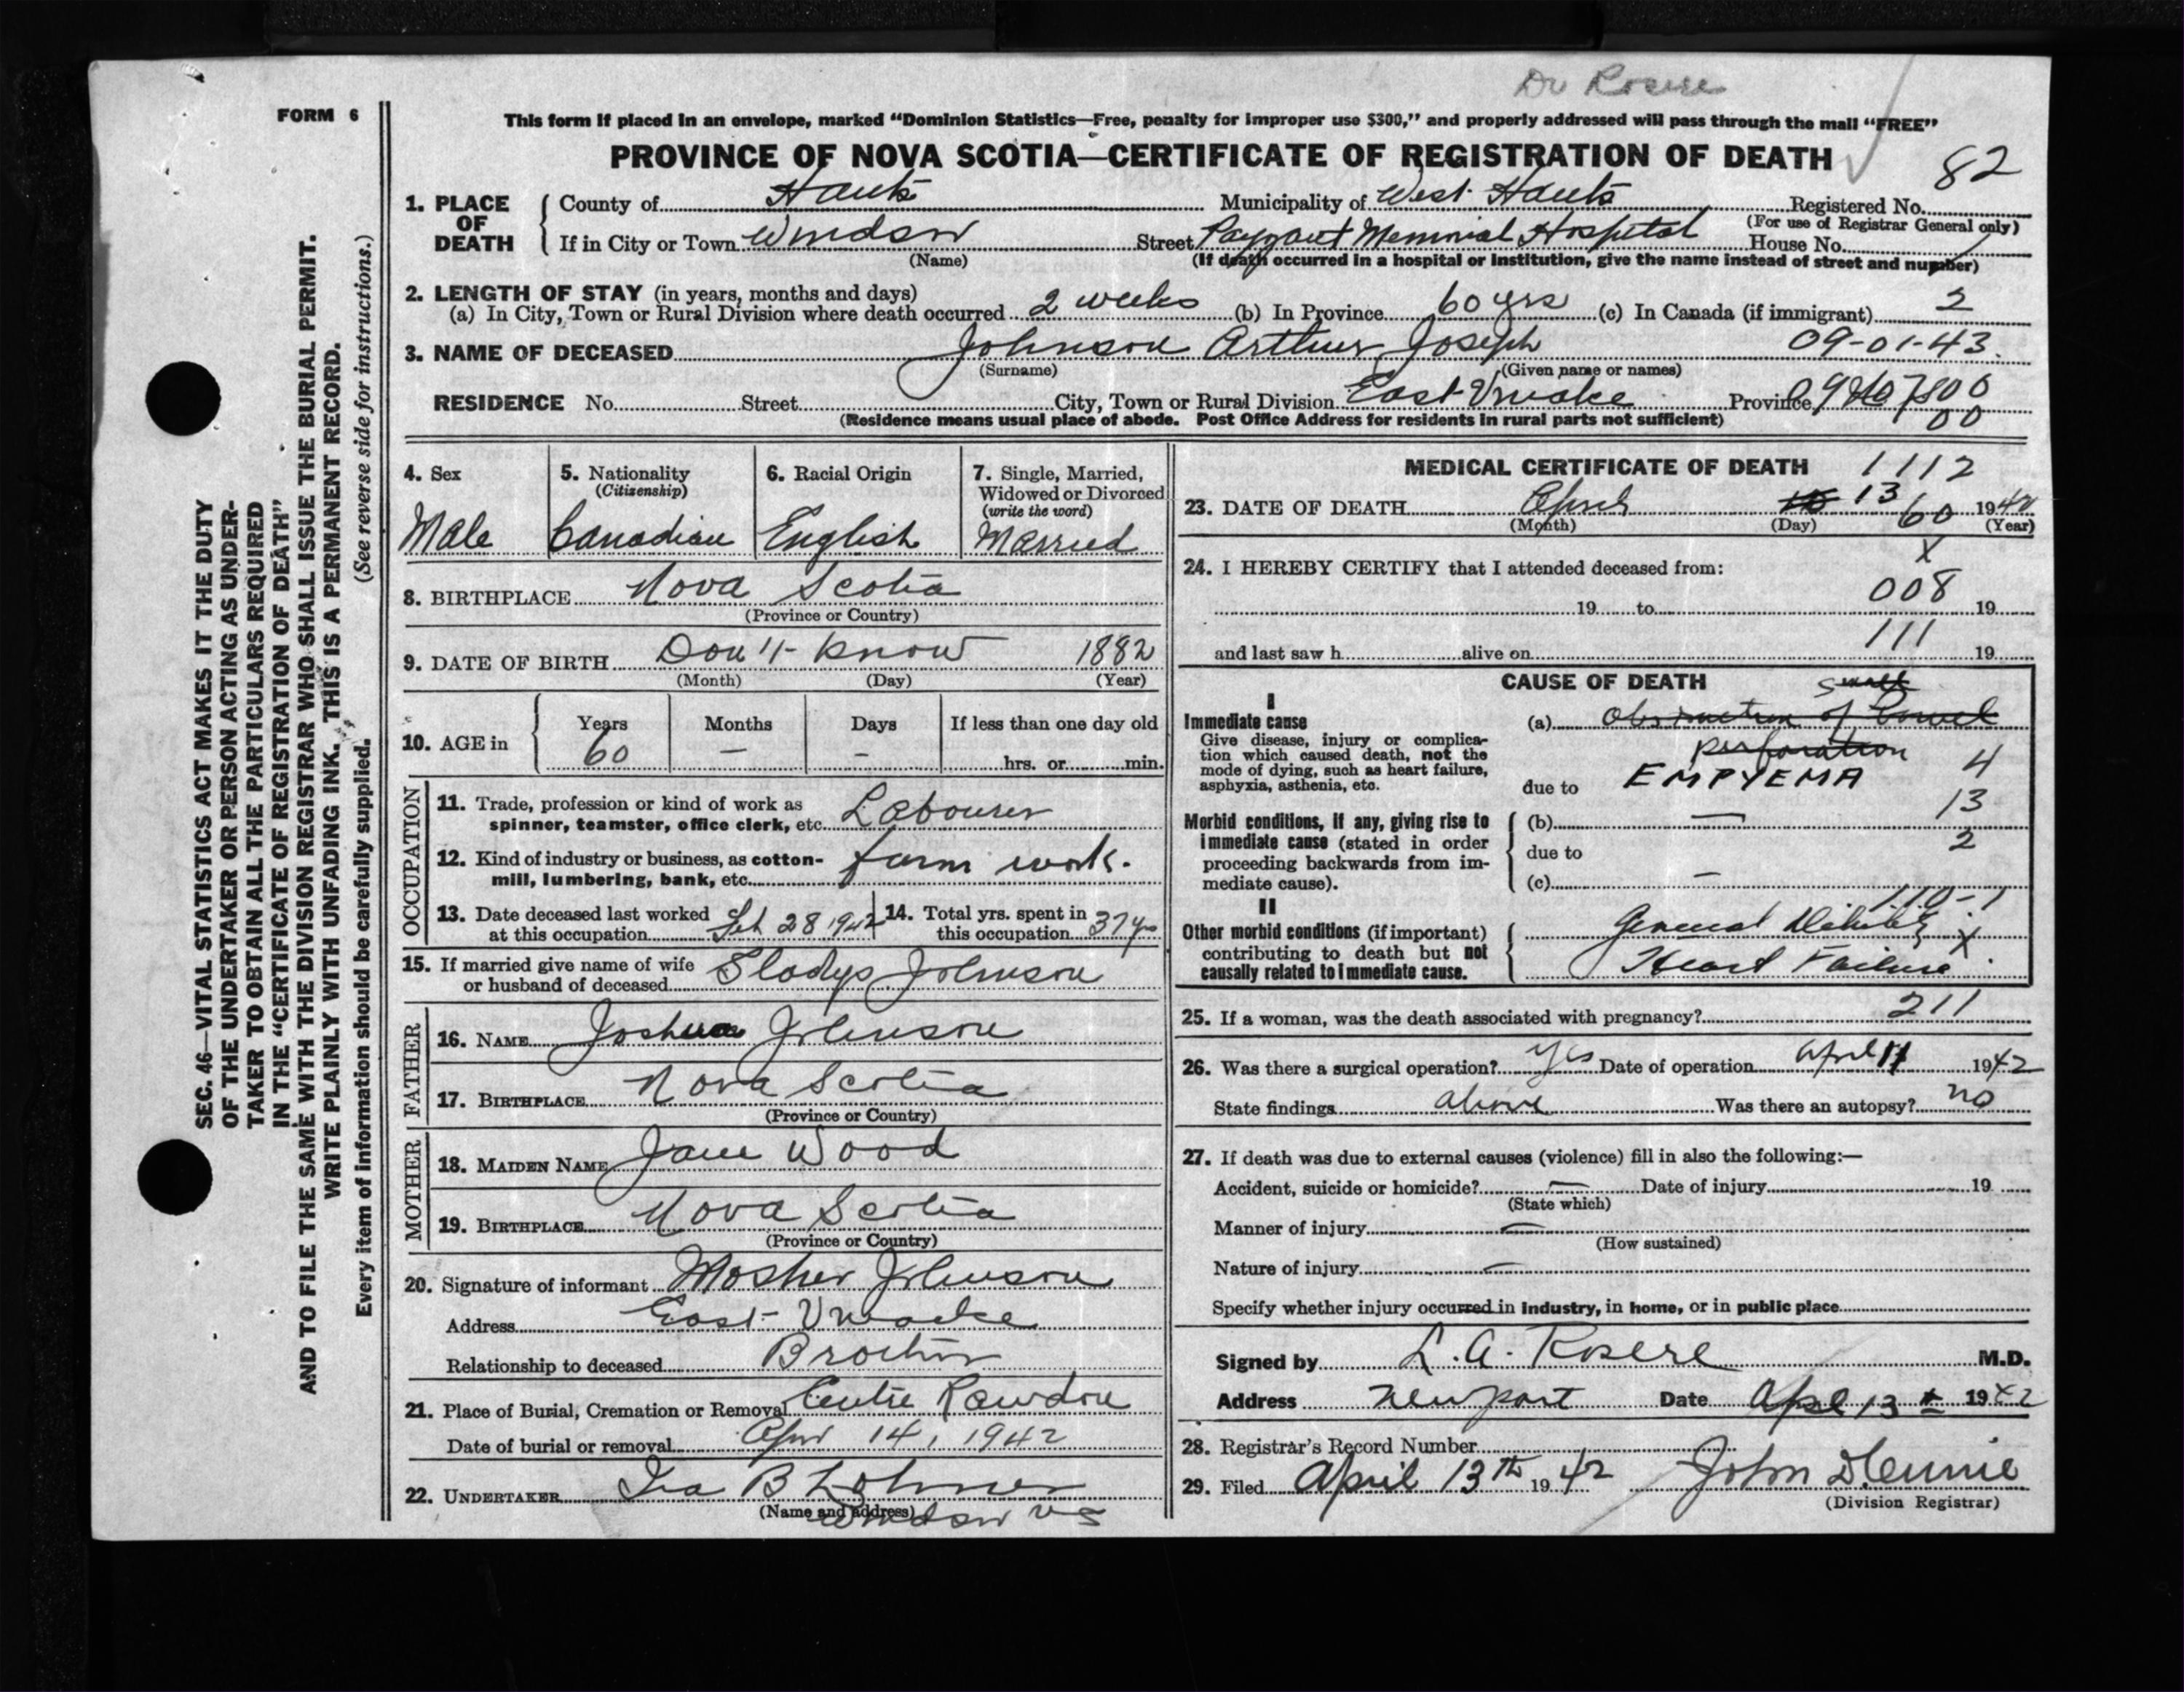 Dr Rosere
FORM 6
This form if placed in an envelope, marked “Dominion Statistics—Free, penalty for improper use $300,” and properly addressed will pass through the mail “FREE”
PROVINCE OF NOVA SCOTIA—CERTIFICATE OF REGISTRATION OF DEATH
82
1. PLACE OF DEATH
County of Hants Municipality of West Hants Registered No.
(For use of Registrar General only)
If in City or Town Windsor Street Payzant Memorial Hospital House No.
(Name) (If death occurred in a hospital or institution, give the name instead of street and number)
2. LENGTH OF STAY (in years, months and days)
(a) In City, Town or Rural Division where death occurred 2 weeks (b) In Province 60 yrs (c) In Canada (if immigrant) 2
3. NAME OF DECEASED Johnson Arthur Joseph 09-01-43
(Surname) (Given name or names)
RESIDENCE No. Street City, Town or Rural Division East Uniacke Province
00
(Residence means usual place of abode. Post Office Address for residents in rural parts not sufficient)
4. Sex
Male
5. Nationality
(Citizenship)
Canadian
6. Racial Origin
English
7. Single, Married,
Widowed or Divorced
(write the word)
Married
8. BIRTHPLACE Nova Scotia
(Province or Country)
9. DATE OF BIRTH Don't know 1882
(Month) (Day) (Year)
10. AGE in
Years Months Days If less than one day old
60 — — hrs. or min.
OCCUPATION
11. Trade, profession or kind of work as
spinner, teamster, office clerk, etc. Labourer
12. Kind of industry or business, as cotton-
mill, lumbering, bank, etc. farm work.
13. Date deceased last worked
at this occupation 28 1942
14. Total yrs. spent in
this occupation 37 yrs
15. If married give name of wife
or husband of deceased Gladys Johnson
FATHER
16. NAME Joshua Johnson
17. BIRTHPLACE Nova Scotia
(Province or Country)
MOTHER
18. MAIDEN NAME Jane Wood
19. BIRTHPLACE Nova Scotia
(Province or Country)
20. Signature of informant Mosher Johnson
Address East Uniacke
Relationship to deceased Brother
21. Place of Burial, Cremation or Removal Centre Rawdon
Date of burial or removal Apr 14, 1942
22. UNDERTAKER Ira B
(Name and address)
Windsor NS
MEDICAL CERTIFICATE OF DEATH 1112
23. DATE OF DEATH April 13 1942
(Month) (Day) 60 (Year)
X
24. I HEREBY CERTIFY that I attended deceased from:
19 to 008 19
111
and last saw h alive on 19
CAUSE OF DEATH
I
Immediate cause
Give disease, injury or complica-
tion which caused death, not the
mode of dying, such as heart failure,
asphyxia, asthenia, etc.
small
(a) Obstruction of bowel
perforation 4
due to EMPYEMA
13
Morbid conditions, if any, giving rise to
immediate cause (stated in order
proceeding backwards from im-
mediate cause).
(b) —
due to 2
(c) —
110-1
II
Other morbid conditions (if important)
contributing to death but not
causally related to immediate cause.
General Debility X
Heart Failure
211
25. If a woman, was the death associated with pregnancy?
26. Was there a surgical operation? yes Date of operation April 11 1942
State findings above Was there an autopsy? no
27. If death was due to external causes (violence) fill in also the following:—
Accident, suicide or homicide? — Date of injury 19
(State which)
Manner of injury —
(How sustained)
Nature of injury —
Specify whether injury occurred in industry, in home, or in public place
Signed by L. A. Rosere M.D.
Address Newport Date April 13th 1942
28. Registrar's Record Number
29. Filed April 13th 1942 John
(Division Registrar)
SEC. 46—VITAL STATISTICS ACT MAKES IT THE DUTY
OF THE UNDERTAKER OR PERSON ACTING AS UNDER-
TAKER TO OBTAIN ALL THE PARTICULARS REQUIRED
IN THE “CERTIFICATE OF REGISTRATION OF DEATH”
AND TO FILE THE SAME WITH THE DIVISION REGISTRAR WHO SHALL ISSUE THE BURIAL PERMIT.
WRITE PLAINLY WITH UNFADING INK. THIS IS A PERMANENT RECORD.
Every item of information should be carefully supplied. (See reverse side for instructions.)